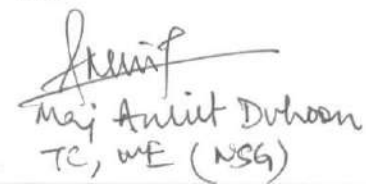 Maj Ankit Duhoon
TC, WE (NSG)